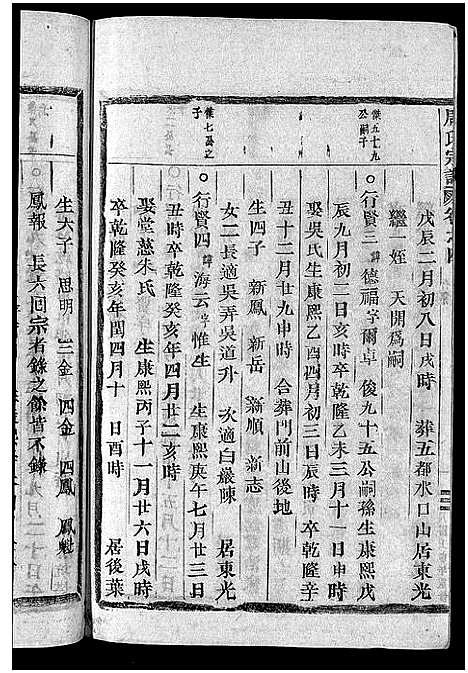 氏宗譜
戊辰二月初八日戌時 葬五都水口山居東光
繼一姪 天開爲嗣
傑五十九公嗣子
○行賢三諱德福字爾卓 後九十五公嗣孫生康熙戊
辰九月初三日亥時卒乾隆乙未三月十一日申時
娶吳氏生康熙乙酉四月初三日辰時卒乾隆辛
丑十二月廿九申時 合葬門前山後地
生四子 新鳳 新岳 新順 新志
女二長適吳弄吳道升 次適白巖陳 居東光
傑七公之子
○行賢四諱海云字惟生 生康熙庚午七月廿三日
丑時卒乾隆癸亥年四月廿二亥時
娶堂慈朱氏 生康熙丙子十一月廿六日戌時
卒乾隆癸亥年閏四月十 日酉時 居後葉
生六子 思明 三金 四金 四鳳 鳳魁
○鳳報 長六回宗者錄之餘皆不錄